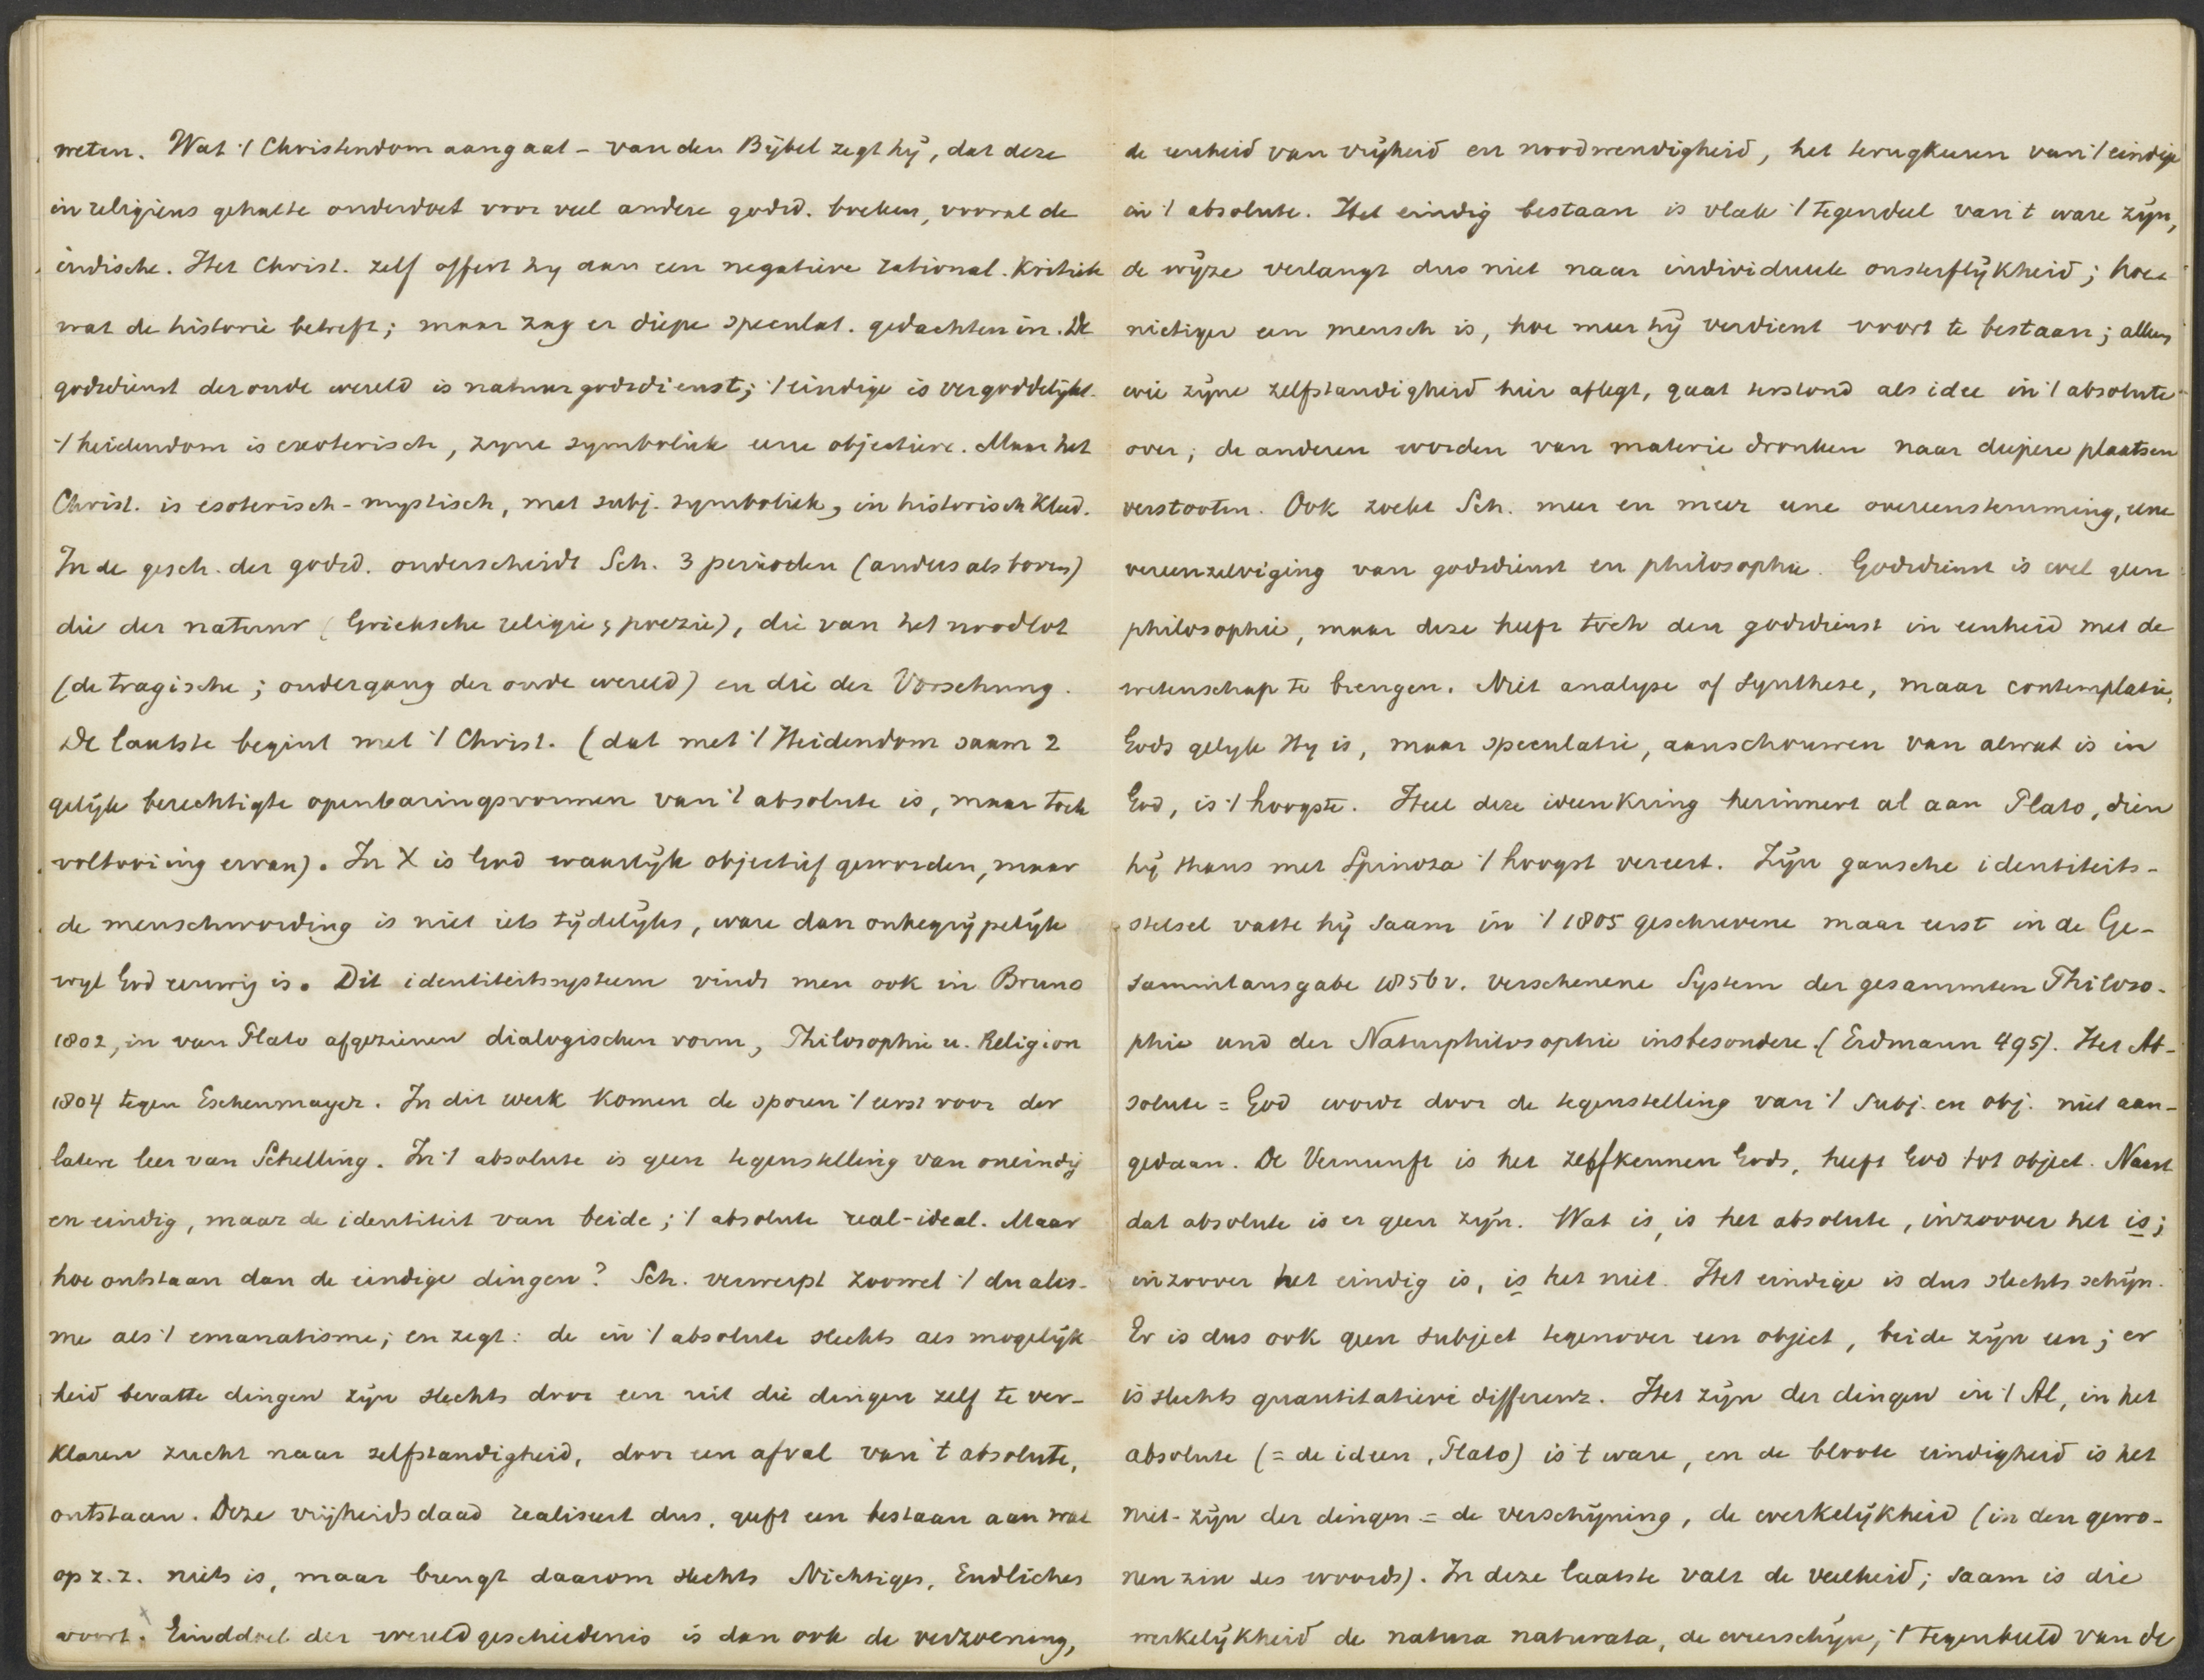 weten. Wat 't Christendom aangaat - van den Bijbel zegt hij, dat deze
in religieus gehalte onderdoet voor veel andere godsd. boeken, vooral de
indische. Het Christ. zelf offert hy aan een negatieve rational. kritiek
wat de historie betreft; maar zag er diepe speculat. gedachten in. De
godsdienst der oude wereld is natuurgodsdienst; 't eindige is vergoddelijkt.
't heidendom is exoterisch, zyne symboliek eene objectieve. Maar het
Christ. is esoterisch-mystisch, met subj. symboliek, in historisch kleed.
In de gesch. der godsd. onderscheidt Sch. 3 perioden (anders als boven)
die der natuur (Grieksche religie & poezie), die van het noodlot
(de tragische; ondergang der oude wereld) en die der Vorsehung.
De laatste begint met 't Christ. (dat met 't Heidendom saam 2
gelijk berechtigte openbaringsvormen van 't absolute is, maar toch
voltooiing ervan). In X is God waarlijk objectief geworden, maar
de menschwording is niet iets tijdelijks, ware dan onbegrijpelijk
wijl God eeuwig is. Dit identiteitssysteem vindt men ook in Bruno
1802, in van Plato afgezienen dialogischen vorm, Philosophie u. Religion
1804 tegen Eschenmayer. In dit werk komen de sporen 't eerst voor der
latere leer van Schelling. In 't absolute is geen tegenstelling van oneindig
en eindig, maar de identiteit van beide; 't absolute real-ideal. Maar
hoe ontstaan dan de eindige dingen? Sch. verwerpt zoowel 't dualis-
me als 't emanatisme; en zegt: de in 't absolute slechts als mogelijk-
heid bevatte dingen zijn slechts door een uit die dingen zelf te ver-
klaren zucht naar zelfstandigheid, door een afval van 't absolute,
ontstaan. Deze vrijheidsdaad realiseert dus, geeft een bestaan aan wat
op z.z. niets is, maar brengt daarom slechts Nichtiges, Endliches
voort. Einddoel der wereldgeschiedenis is dan ook de verzoening,
de eenheid van vrijheid en noodwendigheid, het terugkeeren van 't eindige
in 't absolute. Het eindig bestaan is vlak 't tegendeel van 't ware zijn,
de wijze verlangt dus niet naar individueele onsterflijkheid; hoe
nietiger een mensch is, hoe meer hij verdient voort te bestaan; alleen
wie zijne zelfstandigheid hier aflegt, gaat terstond als idee in 't absolute
over; de anderen worden van materie dronken naar diepere plaatsen
verstooten. Ook zoekt Sch. meer en meer eene overeenstemming, eene
vereenzelviging van godsdienst en philosophie. Godsdienst is wel geen
philosophie, maar deze heeft toch den godsdienst in eenheid met de
wetenschap te brengen. Niet analyse of synthese, maar contemplatie,
Gods gelijk Hy is, maar speculatie, aanschouwen van alwat is in
God, is 't hoogste. Heel deze ideenkring herinnert al aan Plato, dien
hij thans met Spinoza 't hoogst vereert. Zijn gansche identiteits-
stelsel vatte hij saam in 't 1805 geschrevene maar eerst in de Ge-
sammtausgabe 1856 v. verschenene System der gesammten Philoso-
phie und der Naturphilosophie insbesondere. (Erdmann 495). Het Ab-
solute = God wordt door de tegenstelling van 't subj. en obj. niet aan-
gedaan. De Vernunft is het zelfkennen Gods, heeft God tot object. Naast
dat absolute is er geen zijn. Wat is, is het absolute, inzoover het is;
inzoover het eindig is, is het niet. Het eindige is dus slechts schijn.
Er is dus ook geen subject tegenover een object, beide zijn een; er
is slechts quantitatieve differenz. Het zijn der dingen in 't Al, in het
absolute (= de ideen, Plato) is 't ware, en de bloote eindigheid is het
niet-zijn der dingen = de verschijning, de werkelijkheid (in den gewo-
nen zin des woords). In deze laatste valt de veelheid; saam is die
werkelijkheid de natura naturata, de weerschijn, 't tegenbeeld van de